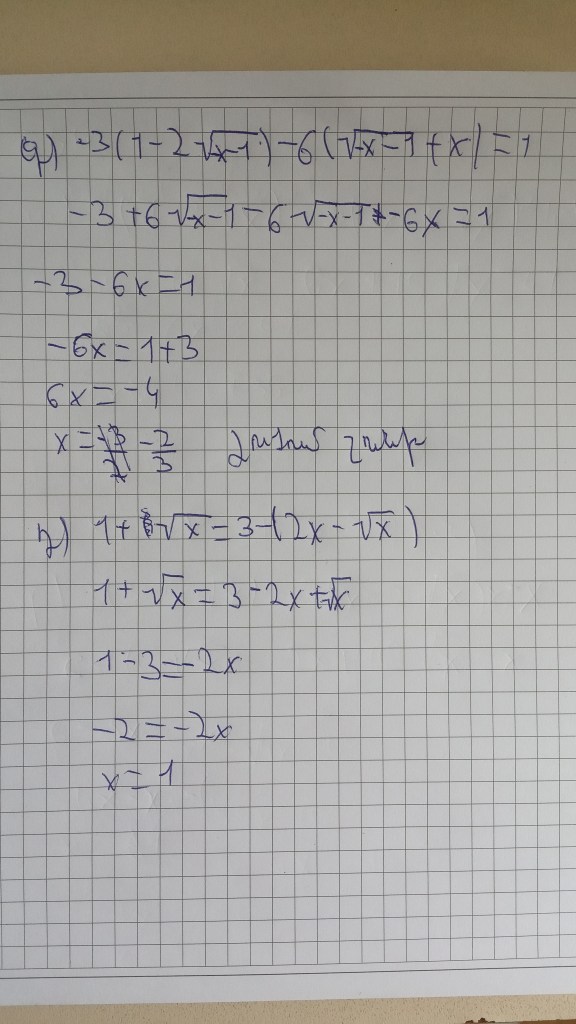 գ) -3(1-2√-x-1)-6(√-x-1+x)=1
-3+6√-x-1-6√-x-1-6x=1
-3-6x=1
-6x=1+3
6x=-4
x= -2/3
1+√x=3-(2x-√x)
1+√x=3-2x+√x
1-3=-2x
-2=-2x
x=1